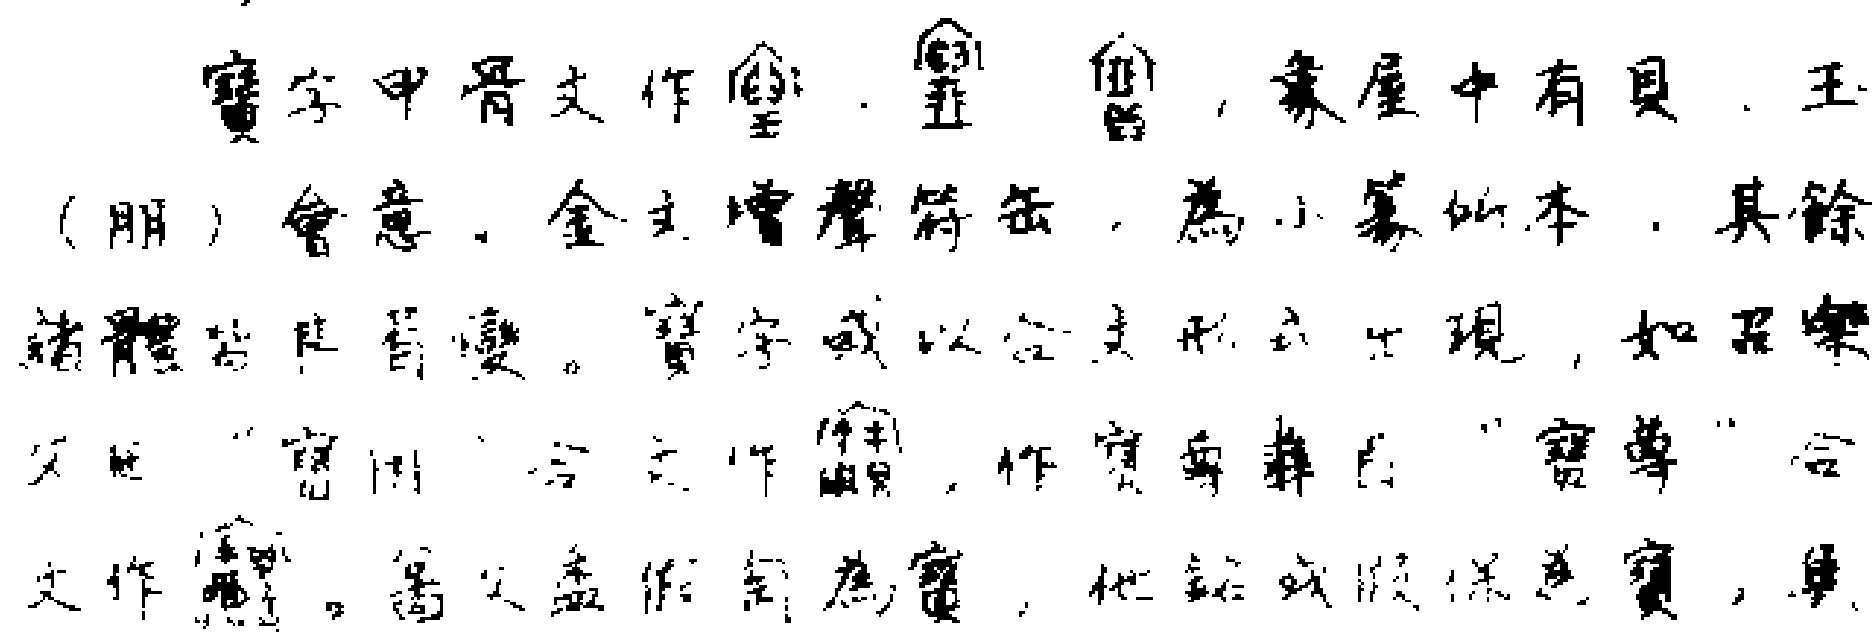 寶字甲骨文作、，象屋中有貝、玉
（朋）會意。金文增聲符缶，為小篆所本，其餘
諸體皆其省變。寶字或以合文形式出現，如召樂
父匜“寶用”合文作，作寶尊彝卣“寶尊”合
文作。萬父盉假匋為寶，他銘或假保為寶，與